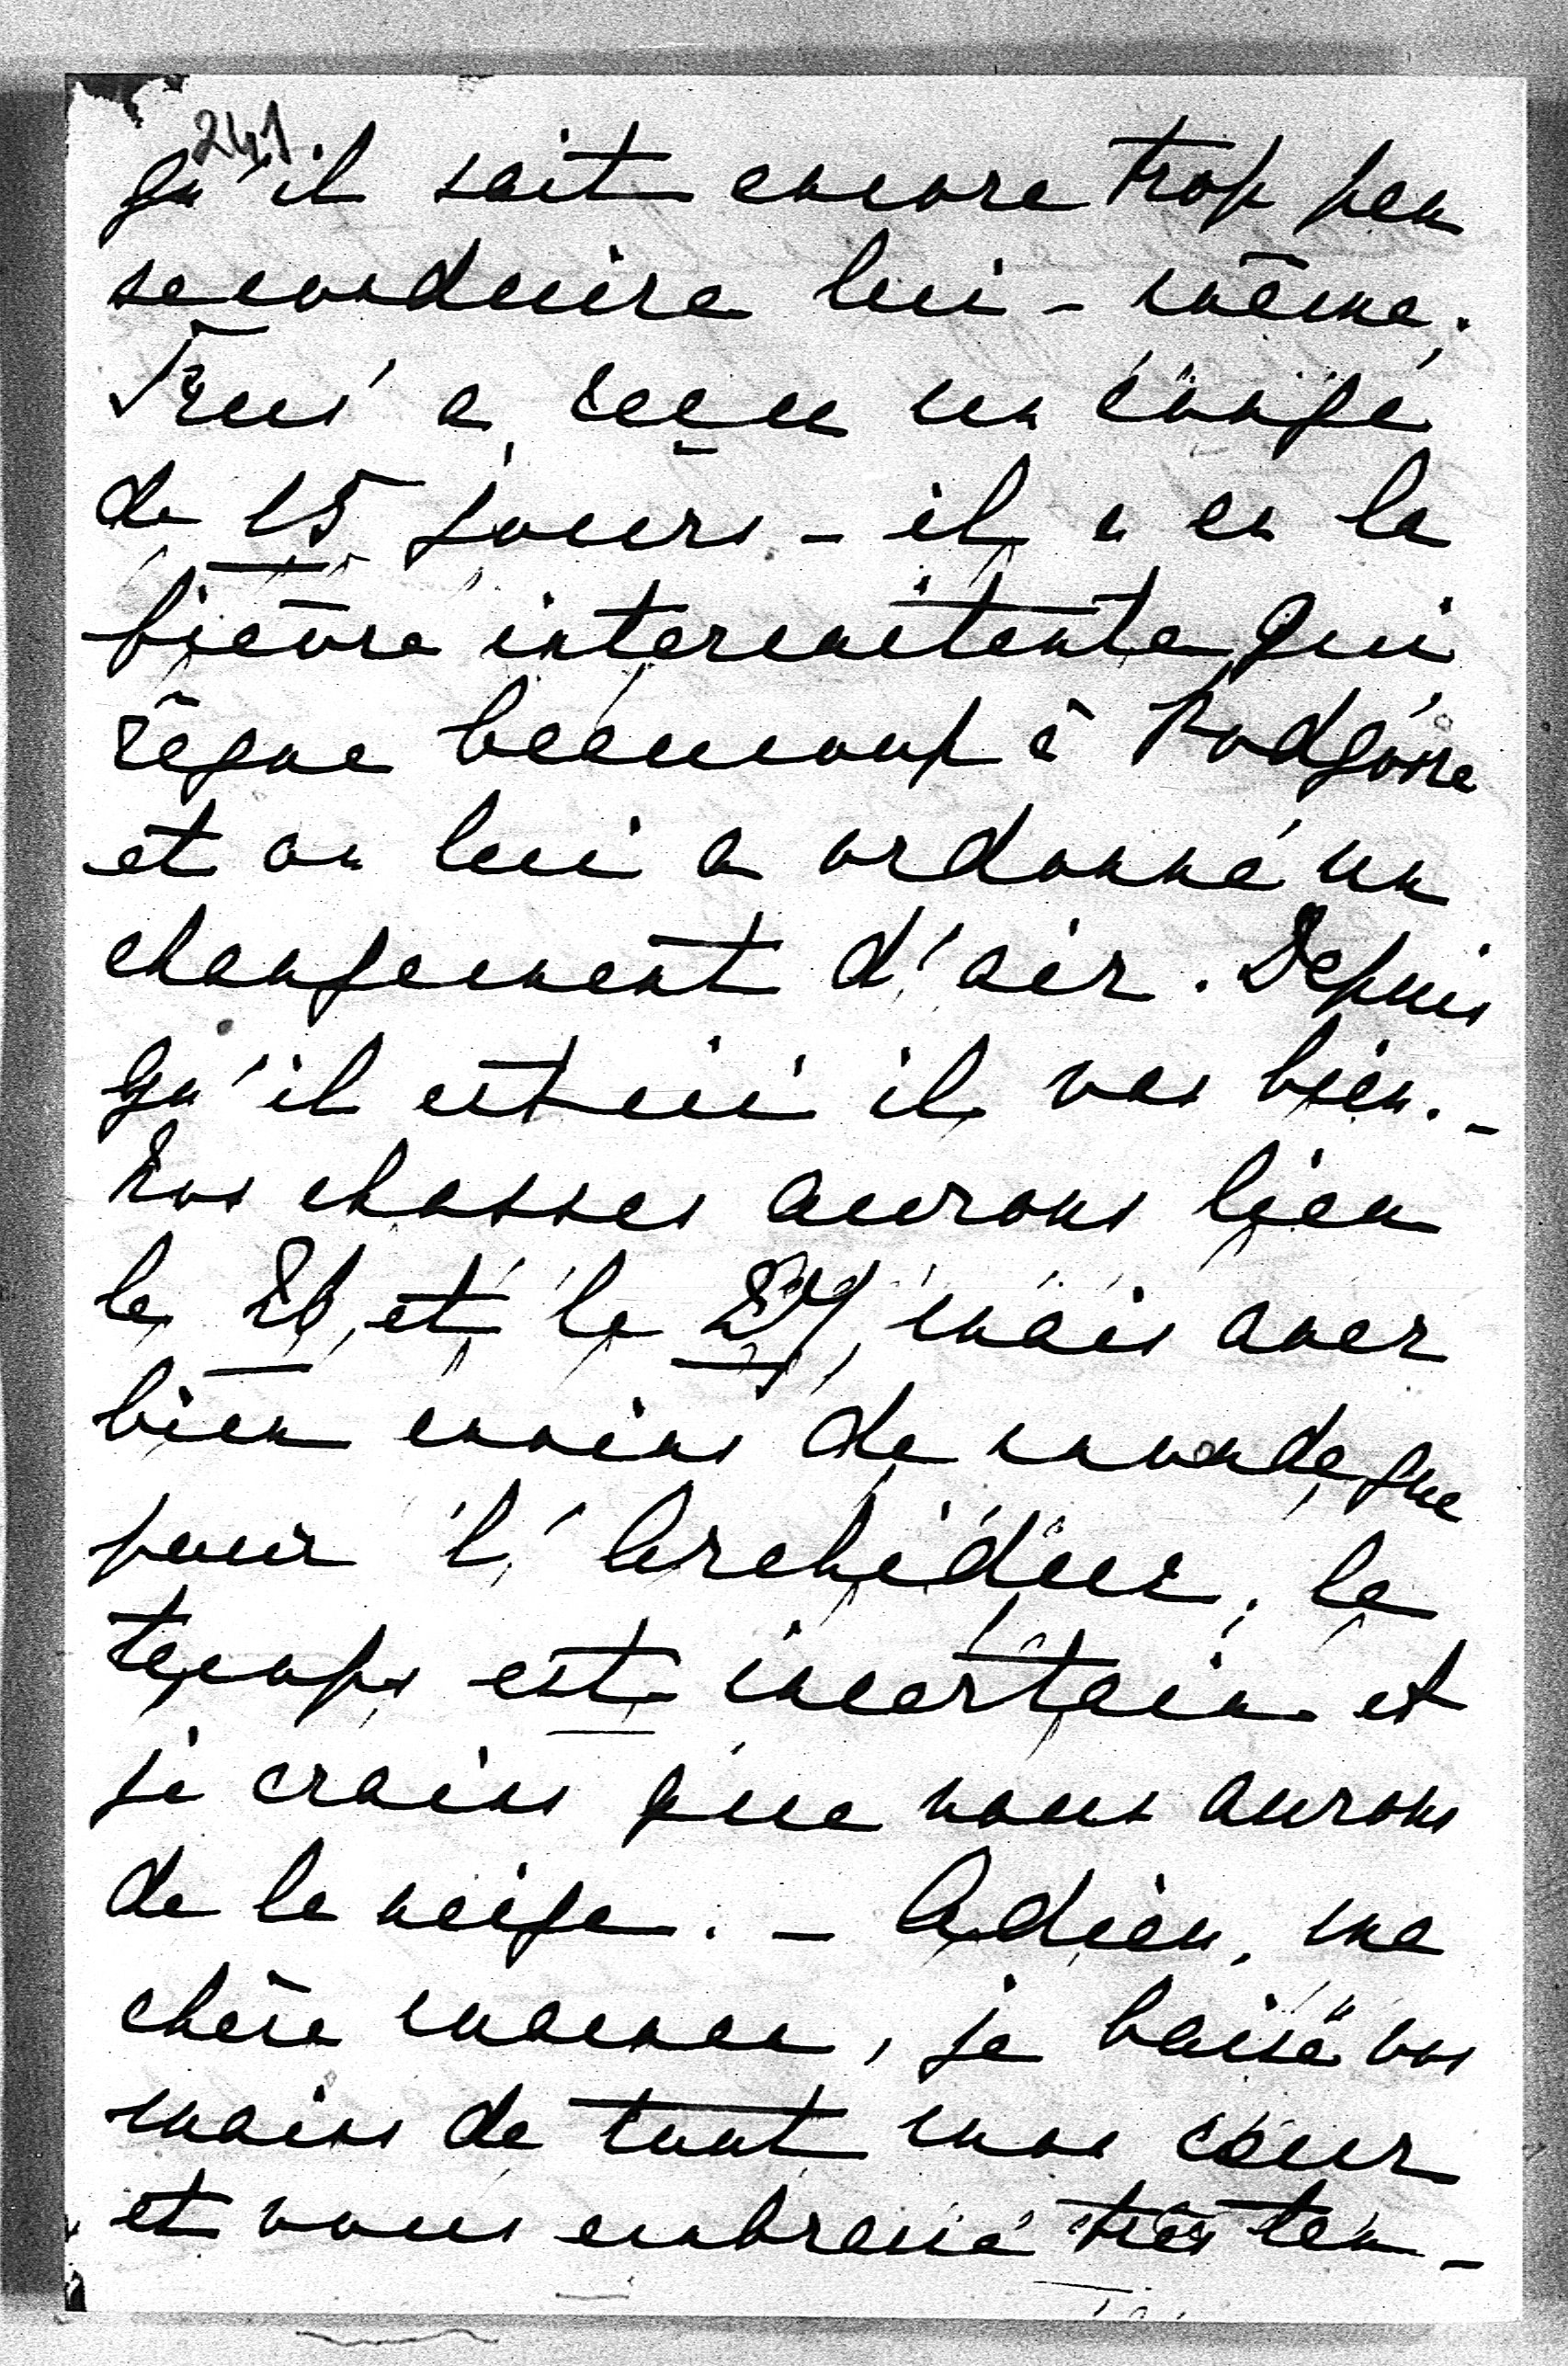 241
qu'il sait encore trop peu
se conduire lui-même.
a reçu un congé
de 15 jours - il a eu la
fièvre intermitente qui
règne beaucoup à Podgórze
et on lui a ordonné un
changement d'air. Depuis
qu'il est ici il vas bien. -
Nos chasses aurons lieu
le 26 et le 27, mais avec
bien moins de monde que
pour l'Archiduc, le
temps est incertain et
je crains que nous aurons
de la neige. - Adieu, ma
chère maman, je baise vos
mains de tout mon cœur
et vous embrasse très ten-